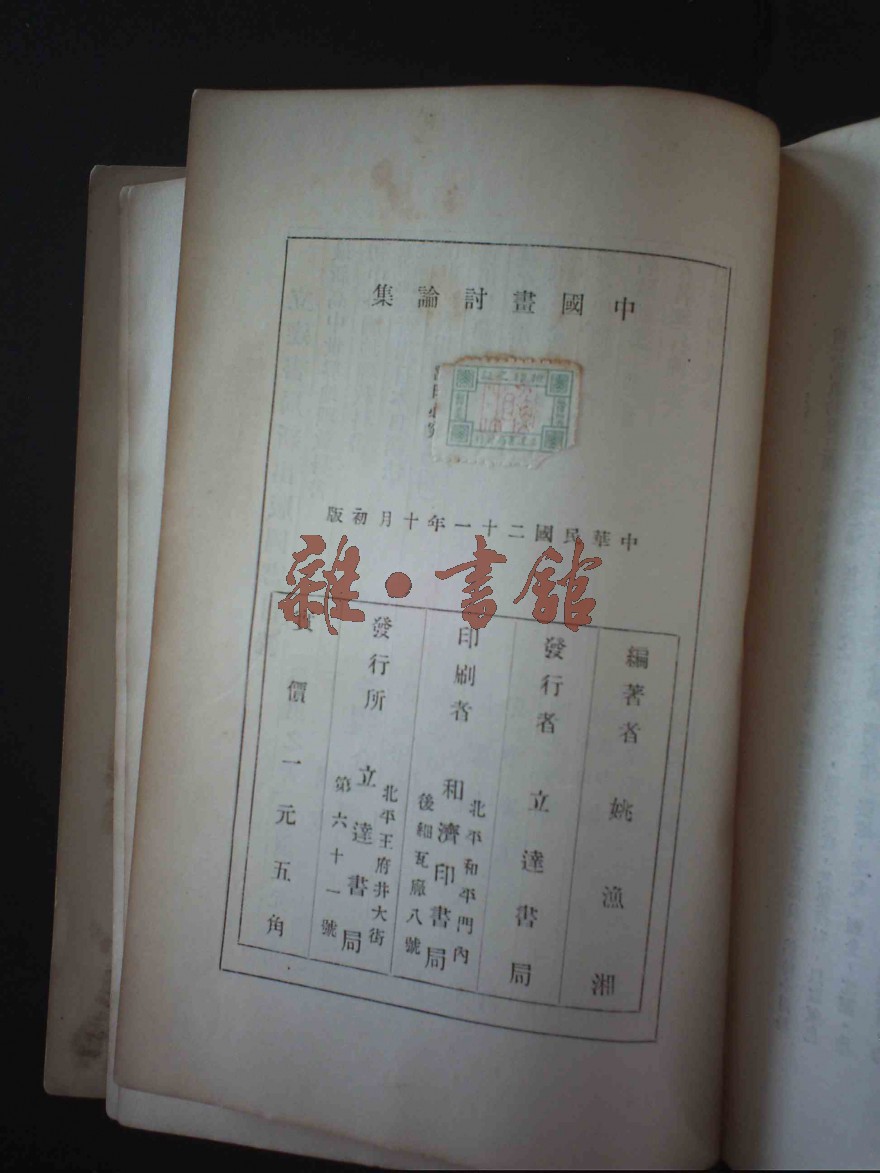 中國畫討論集
中華民國二十一年十月初版
雜・書館
編著者 姚漁湘
發行者 立達書局
印刷者 和濟印書局
北平和平門內
後細瓦廠八號
發行所 立達書局
北平王府井大街
第六十一號
實價一元五角